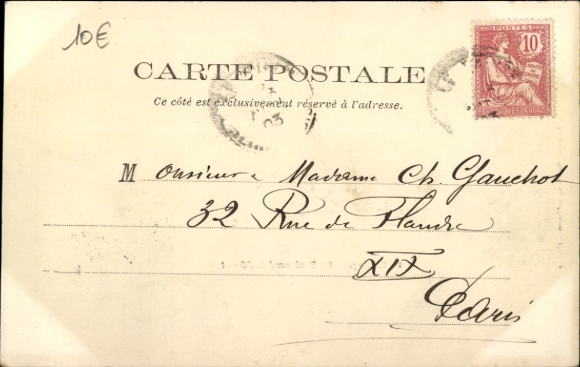 10€
POSTES
10
CARTE POSTALE
Ce côté est exclusivement réservé à l'adresse.
03
Monsieur e Madame Ch. Gauchot
32 Rue de Flandre
XIX
Paris